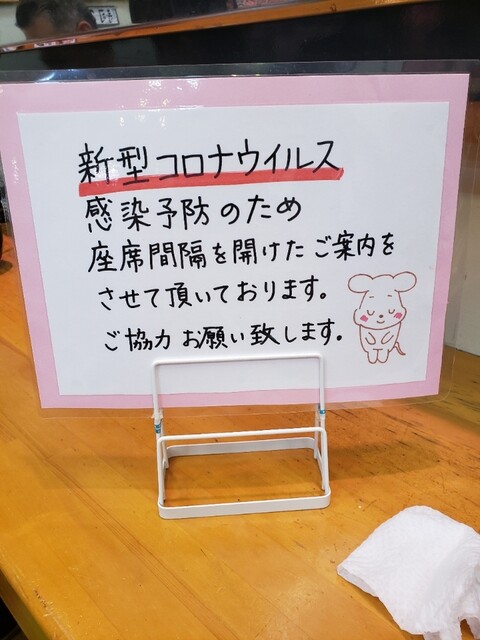 新型コロナウイルス
感染予防のため
座席間隔を開けたご案内を
させて頂いております。
ご協力お願い致します。